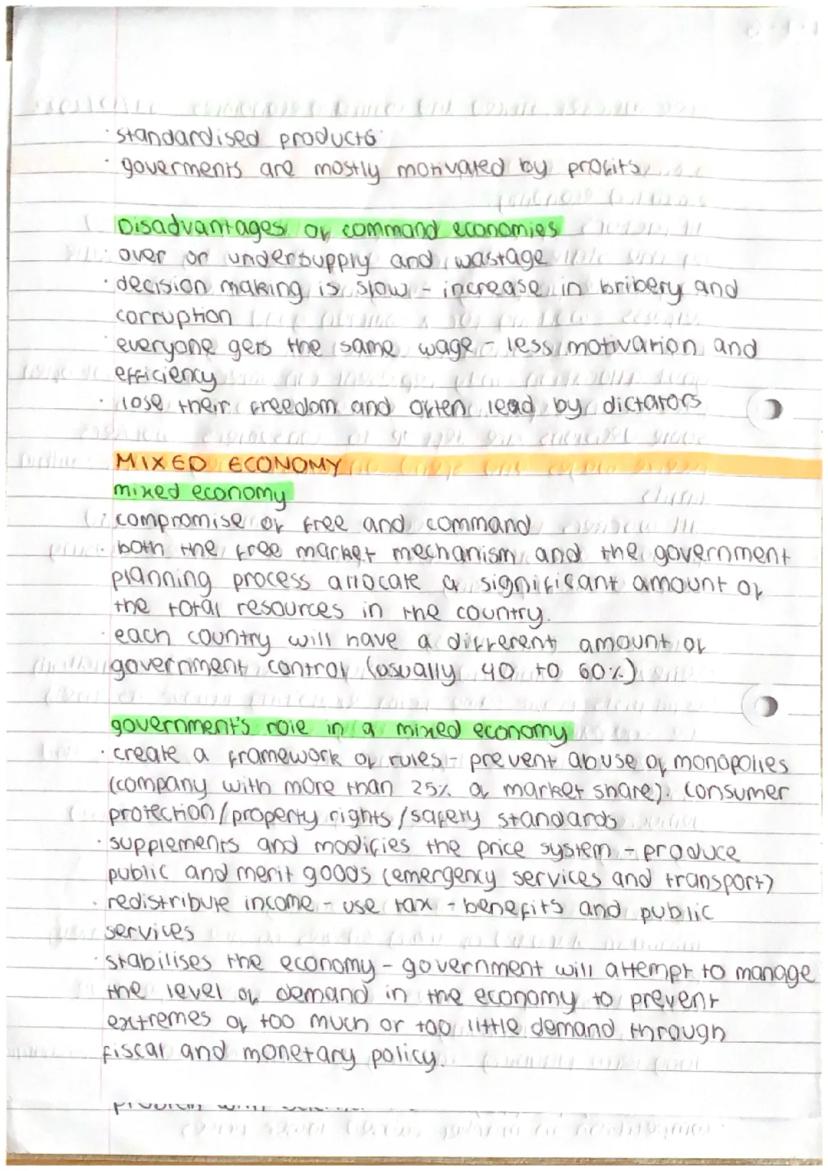 · standardised products
· goverments are mostly motivated by profits
Disadvantages of command economies
· over or undersupply and wastage
· decision making is slow - increase in bribery and
corruption
· everyone gets the same wage - less motivation and
efficiency
· lose their freedom and often lead by dictators
MIXED ECONOMY
mixed economy
· compromise of free and command
· both the free market mechanism and the government
planning process allocate a significant amount of
the total resources in the country.
· each country will have a different amount of
government control (usually 40 to 60%)
government's role in a mixed economy
· create a framework of rules - prevent abuse of monopolies
(company with more than 25% of market share). consumer
protection/property rights/safety standards
· supplements and modifies the price system - produce
public and merit goods (emergency services and transport)
· redistribute income - use tax - benefits and public
services
· stabilises the economy - government will attempt to manage
the level of demand in the economy to prevent
extremes of too much or too little demand through
fiscal and monetary policy.